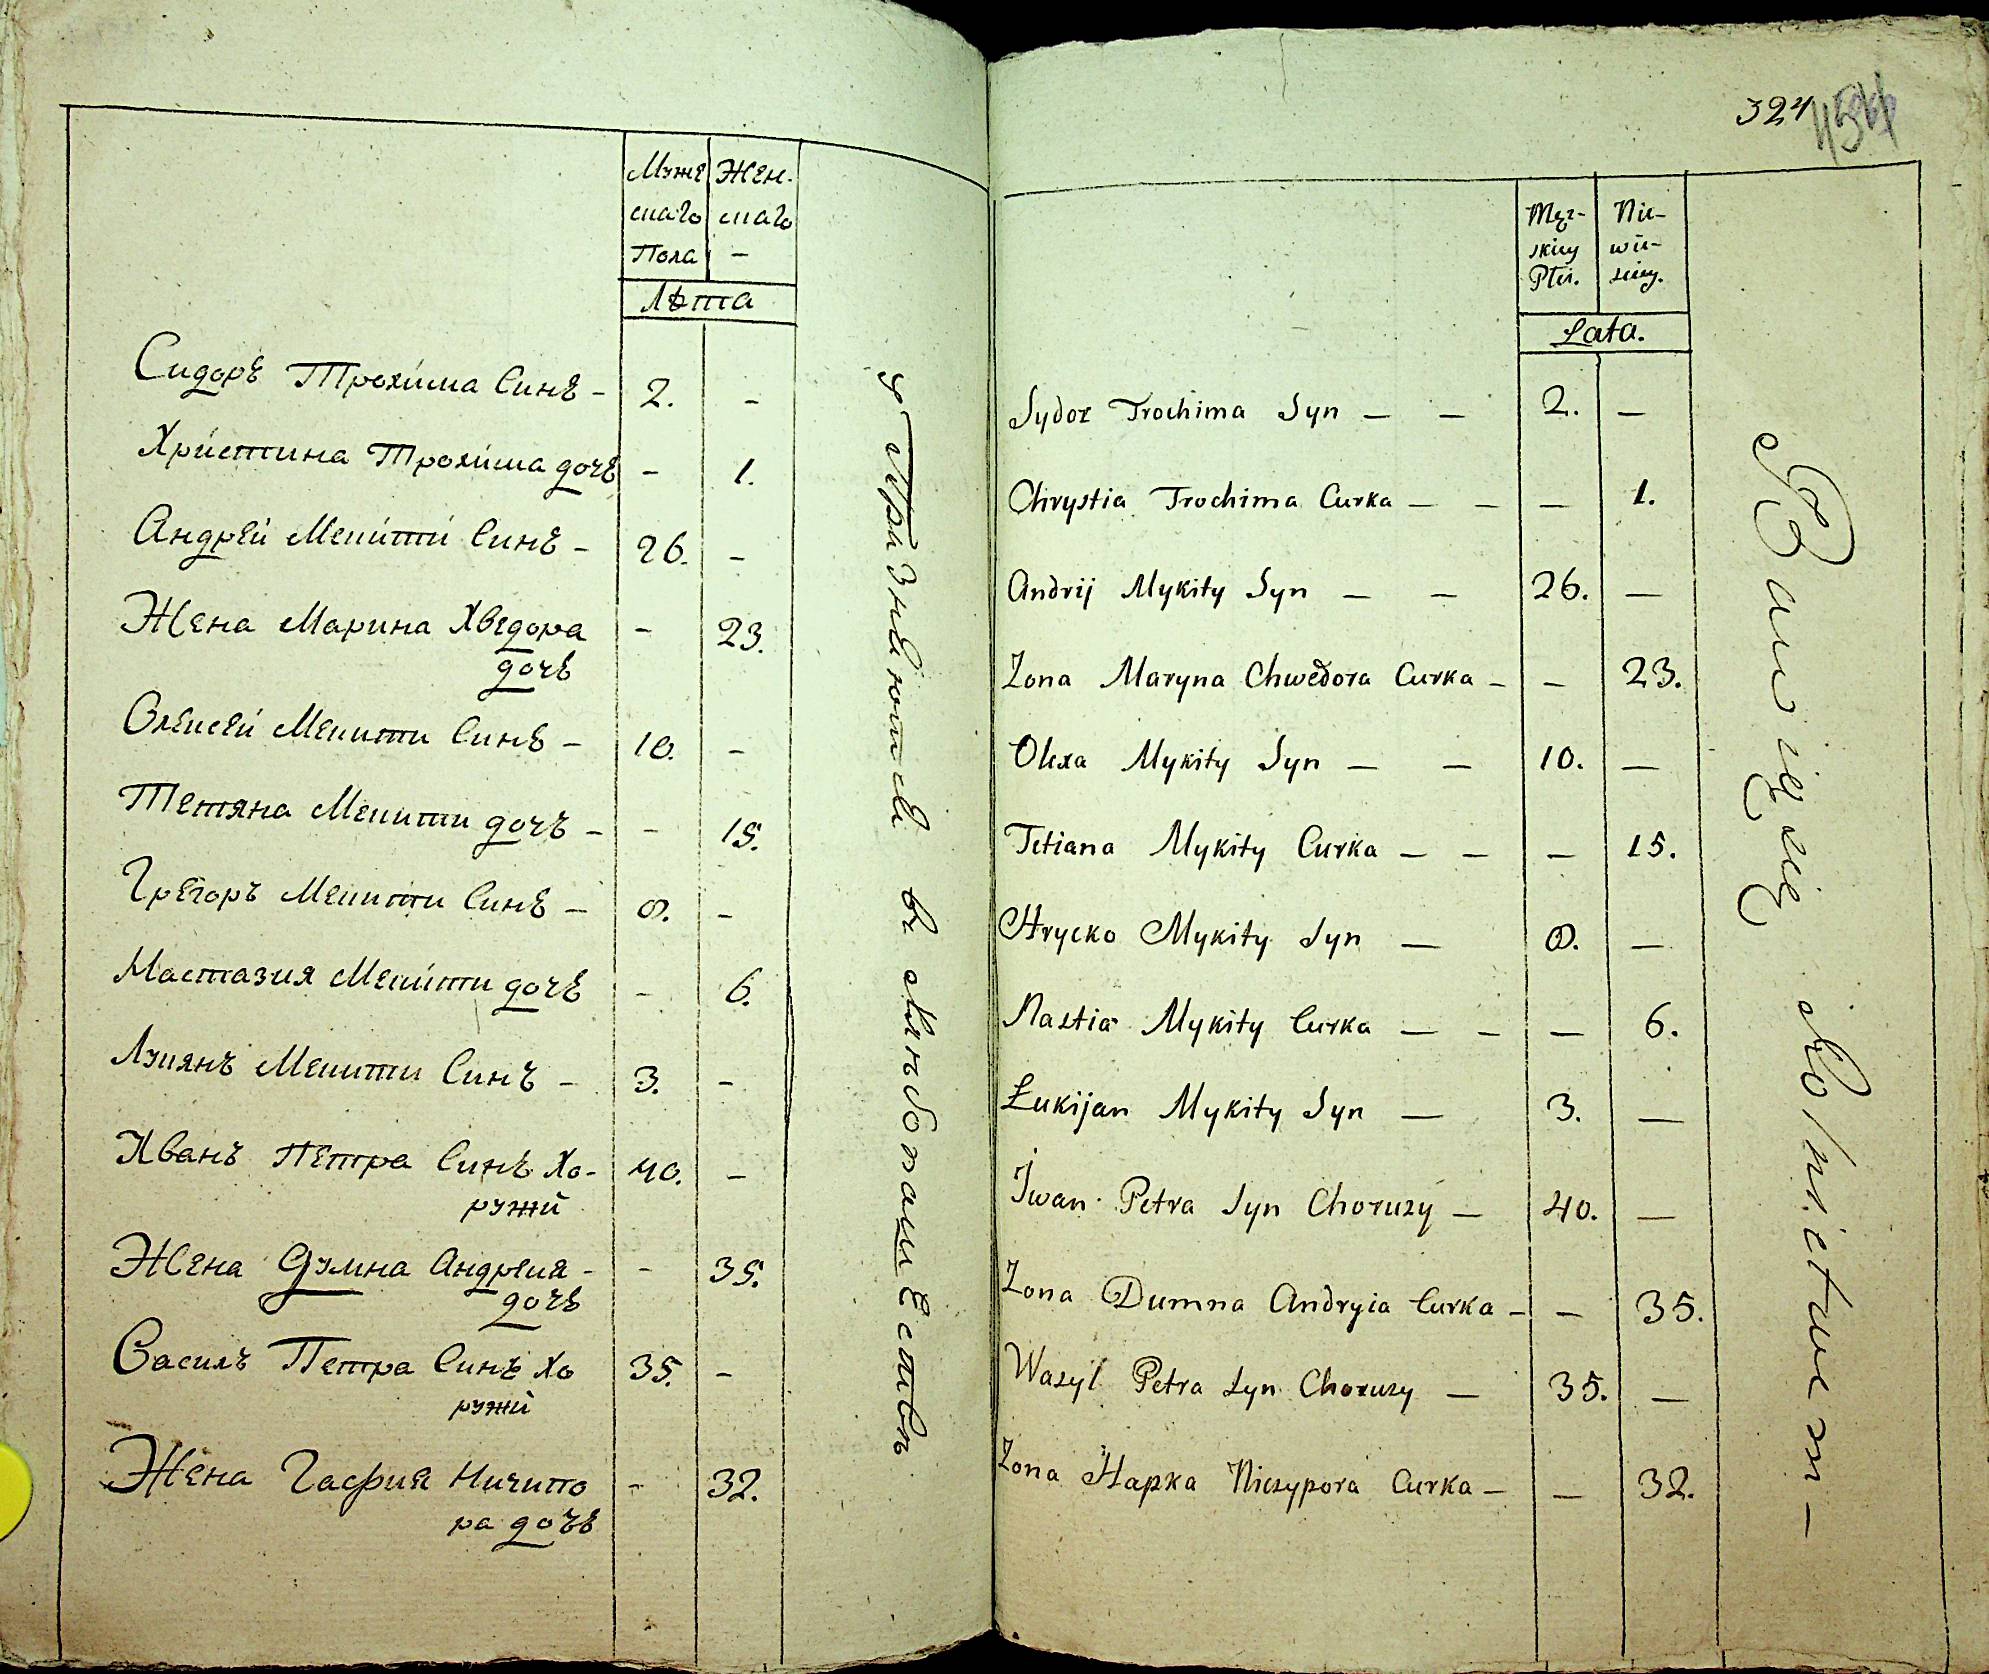 Муже Жен-
скаго скаго
Пола –
Лѣта
Сидоръ Трохима Синъ – 2. –
Христина Трохима дочъ – 1.
Андрей Мекити Синъ – 26. –
Жена Марина Хведора – 23.
дочъ
Олексей Мекити Синъ – 10. –
Тетяна Мекити дочъ – – 15.
Грегоръ Мекити Синъ – 8. –
Настазия Мекити дочъ – 6.
Лукянъ Мекити Синъ – 3. –
Иванъ Петра Синъ Хо- 40. –
ружй
Жена Думна Андрея – – 35.
дочъ
Василъ Петра Синъ Хо 35. –
ружй
Жена Гасфия Ничипо – 32.
ра дочъ
въ
324
Męz- Nie-
skiey wie-
Płci. sciey.
Lata.
Sydor Trochima Syn — — 2. —
Chrystia Trochima Curka — — — 1.
Andrij Mykity Syn — — 26. —
Zona Maryna Chwedora Curka – — 23.
Olexa Mykity Syn — — 10. —
Tetiana Mykity Curka — — — 15.
Hrycko Mykity Syn — 8. —
Nastia Mykity Curka — — — 6.
Łukijan Mykity Syn — 3. —
Iwan Petra Syn Choruzy — 40. —
Zona Dumna Andryia Curka – — 35.
Wasyl Petra Syn Choruzy — 35. —
Zona Hapka Niczypora Curka – — 32.
Bawią się Rolnictwem –